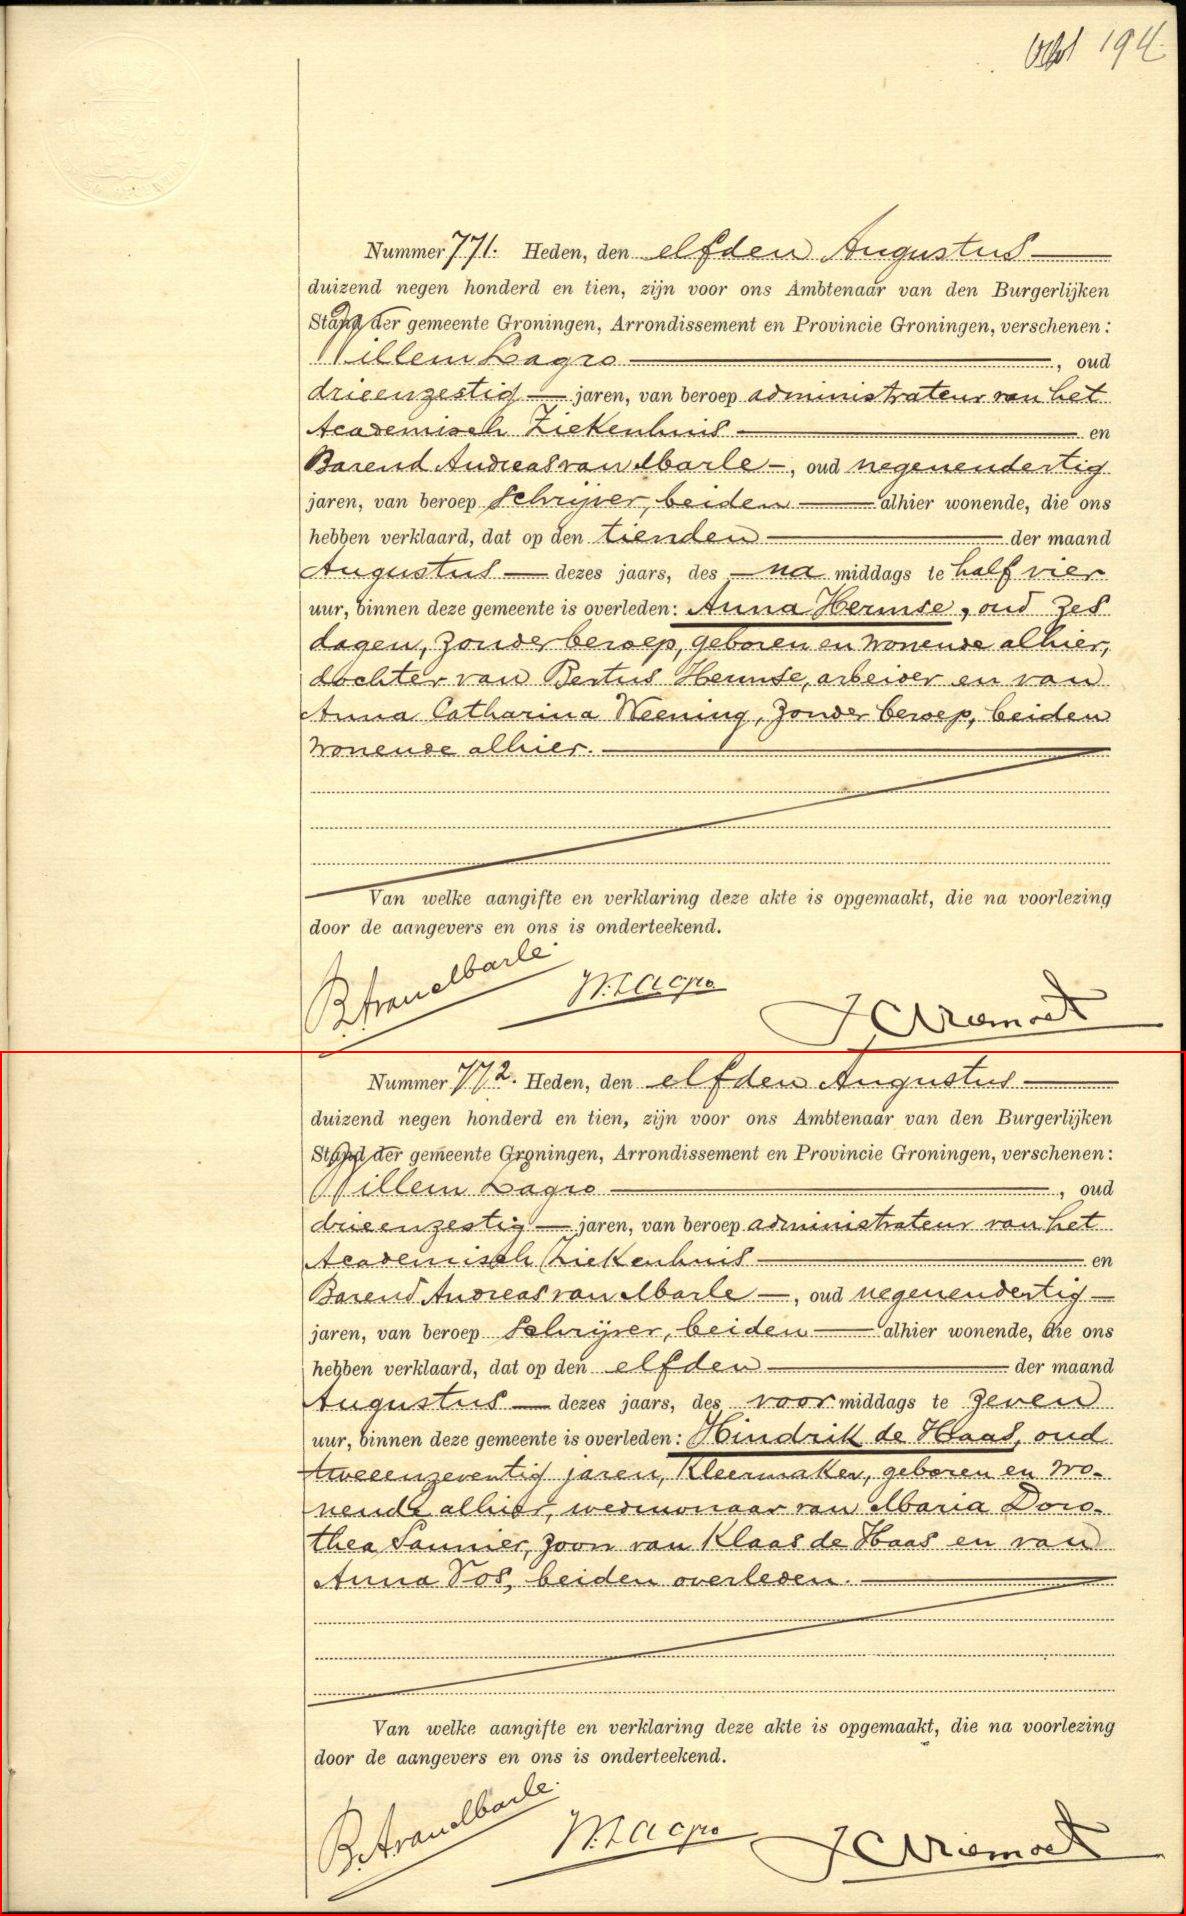 194
Nummer 771. Heden, den elfden Augustus
duizend negen honderd en tien, zijn voor ons Ambtenaar van den Burgerlijken
Stand der gemeente Groningen, Arrondissement en Provincie Groningen, verschenen:
Willem Lagro, oud
drieenzestig jaren, van beroep administrateur van het
Academisch Ziekenhuis en
Barend Andreas van Marle, oud negenendertig
jaren, van beroep schrijver, beiden alhier wonende, die ons
hebben verklaard, dat op den tienden der maand
Augustus dezes jaars, des na middags te half vier
uur, binnen deze gemeente is overleden: Anna Hermse, oud zes
dagen, zonder beroep, geboren en wonende alhier,
dochter van Bertus Hermse, arbeider en van
Anna Catharina Weening, zonder beroep, beiden
wonende alhier.
Van welke aangifte en verklaring deze akte is opgemaakt, die na voorlezing
door de aangevers en ons is onderteekend.
B.A.van Marle W.Lagro J C Vriemoet
Nummer 772. Heden, den elfden Augustus
duizend negen honderd en tien, zijn voor ons Ambtenaar van den Burgerlijken
Stand der gemeente Groningen, Arrondissement en Provincie Groningen, verschenen:
Willem Lagro, oud
drieenzestig jaren, van beroep administrateur van het
Academisch Ziekenhuis en
Barend Andreas van Marle, oud negenendertig
jaren, van beroep schrijver, beiden alhier wonende, die ons
hebben verklaard, dat op den elfden der maand
Augustus dezes jaars, des voor middags te zeven
uur, binnen deze gemeente is overleden: Hindrik de Haas, oud
tweeenzeventig jaren, kleermaker, geboren en wo-
nende alhier, weduwnaar van Maria Doro-
thea Saunier, zoon van Klaas de Haas en van
Anna Vos, beiden overleden.
Van welke aangifte en verklaring deze akte is opgemaakt, die na voorlezing
door de aangevers en ons is onderteekend.
B.A.van Marle W.Lagro J C Vriemoet